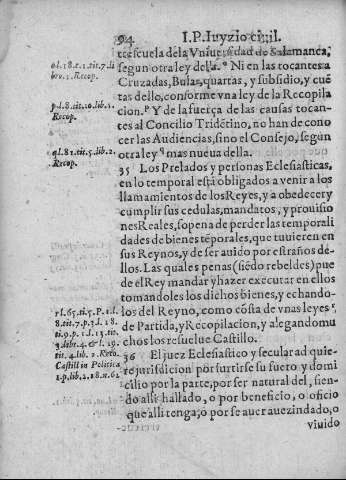 94 I.P.Iuyzio ciuil.
tre escuela de la Vniuersidad de Salamanca,
segun otra ley della.º Ni en las tocantes a
Cruzadas, Bulas, quartas, y subsidio, y cuẽ
tas dello, conforme vna ley de la Recopila
cion.ᵖ Y de la fuerça de las causas tocan-
tes al Concilio Tridẽtino, no han de cono
cer las Audiencias, sino el Consejo, segun
otra ley q mas nueua della.
35 Los Prelados y personas Eclesiasticas,
en lo temporal està obligados a venir a los
llamamientos de los Reyes, y a obedecer y
cumplir sus cedulas, mandatos, y prouisio
nes Reales, so pena de perder las temporali
dades de bienes tẽporales, que tuuieren en
sus Reynos, y de ser auido por estraños de-
llos. Las quales penas (siẽdo rebeldes) pue
de el Rey mandar y hazer executar en ellos
tomandoles los dichos bienes, y echando-
los del Reyno, como cõsta de vnas leyes r
de Partida, y Recopilacion, y alegando mu
chos los resuelue Castillo.
36 El juez Eclesiastico y secular ad quie-
re jurisdicion por surtirse su fuero y domi
cilio por la parte, por ser natural del, sien-
do alli hallado, o por beneficio, o oficio
que alli tenga, ò por se auer auezindado, o
viuido
o l.18.t.1.tit.7.li
bro.1.Recop.
p l.8.tit.10.lib.1.
Recop.
q l.81.tit.5.lib.2.
Recop.
r l.65.ti.5.P.1.l.
8.tit.7.p.3.l.18.
3.lib.4.& l.29.
tit.4.lib.2.Reco.
Castill in Politica
1.p.lib.2.18.n.62